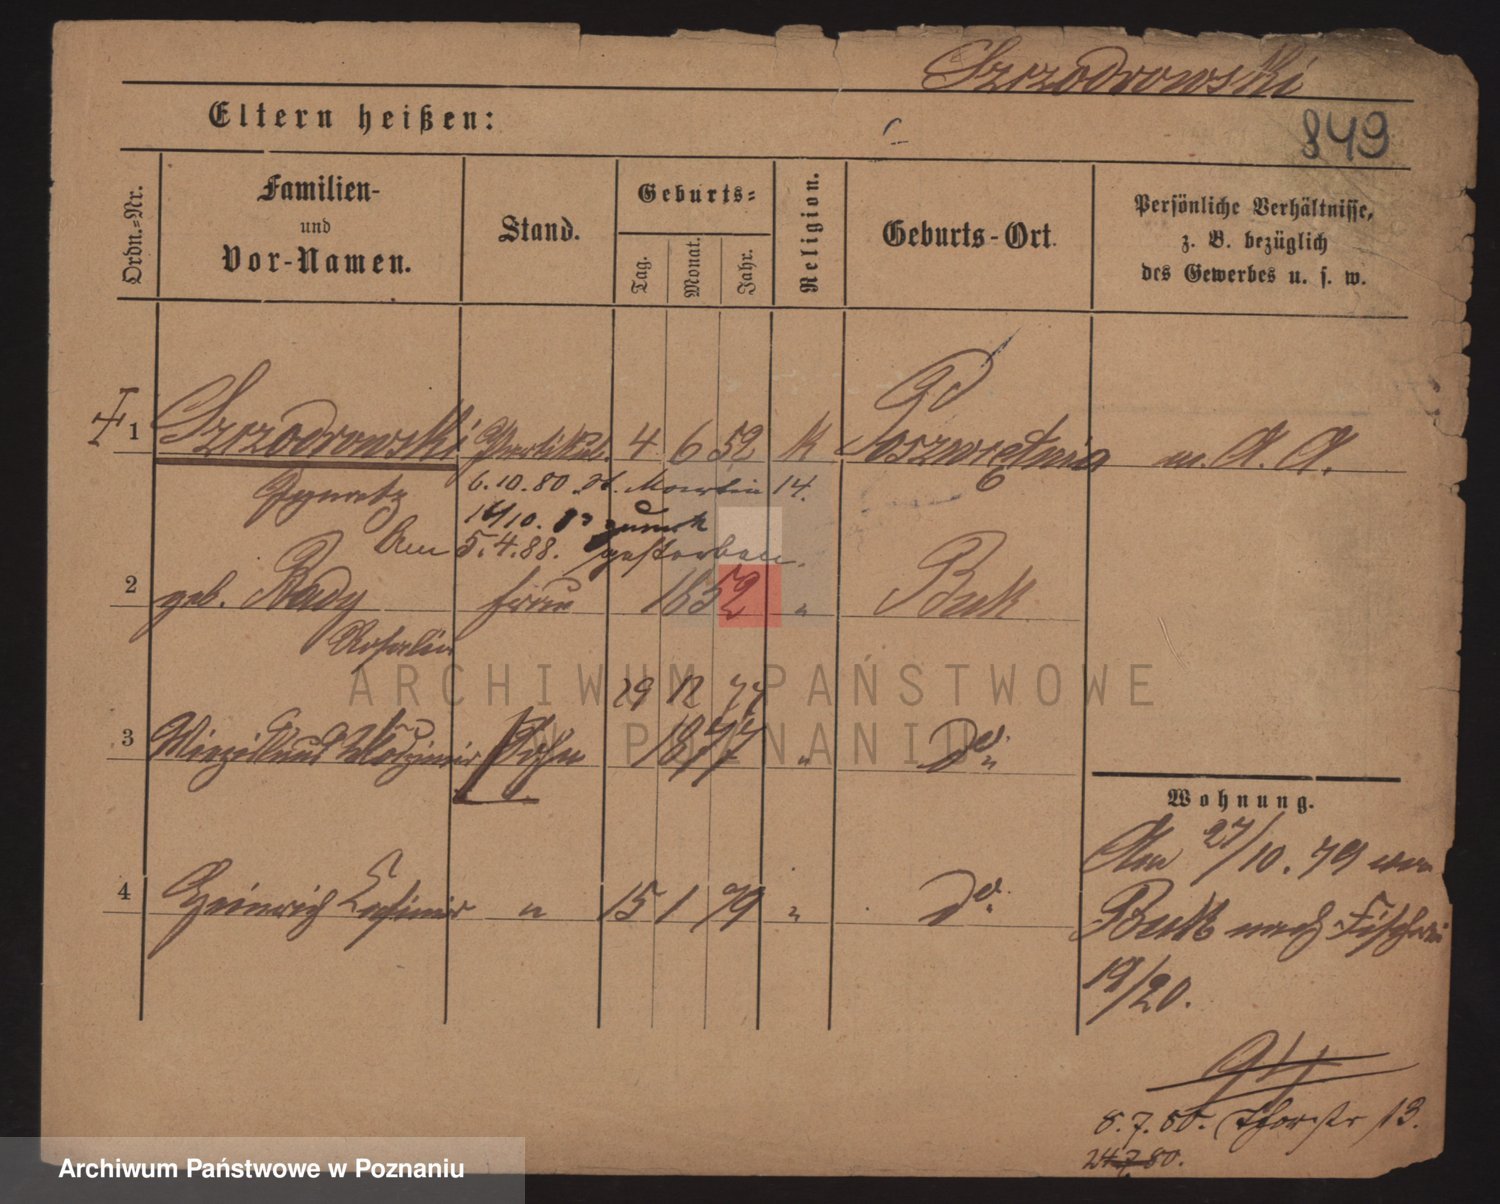 Szczodrowski
Eltern heißen:
849
Ordn.=Nr.
Familien-
und
Vor-Namen.
Stand.
Geburts=
Tag.
Monat.
Jahr.
Religion.
Geburts-Ort.
Persönliche Verhältnisse,
z. B. bezüglich
des Gewerbes u. s. w.
1 Szczodrowski Partikul. 4 6 52 k m. A. A.
Ignatz
6.10.80. St. Martin 14.
16/10. zurück
Am 5.4.88. gestorben.
2 geb. Rady Frau 1852 " Buk
Rosalie
29 12 77
3 Sohn 1877 " do.
4 Heinrich Casimir " 15 1 79 " do.
Wohnung.
Am 27/10. 79 von
Buk nach Fischerei
19/20.
8.7.80. Thorstr 13.
24.7.80.
ARCHIWUM PAŃSTWOWE
W POZNANIU
Archiwum Państwowe w Poznaniu